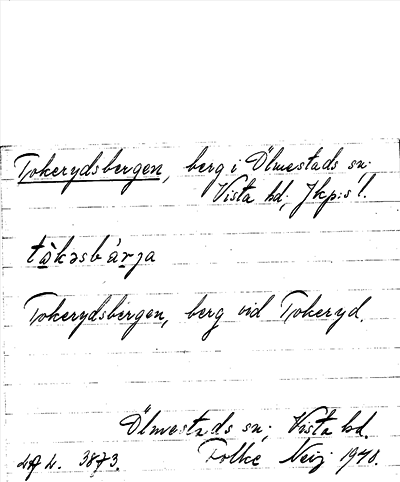 Tokerydsbergen, berg i Ölmestads sn;
Vista hd; Jkp:s l.
tòkəsbàrja
Tokerydsbergen, berg vid Tokeryd.
Ölmestads sn; Vista hd.
3873. Folke Neij 1940.